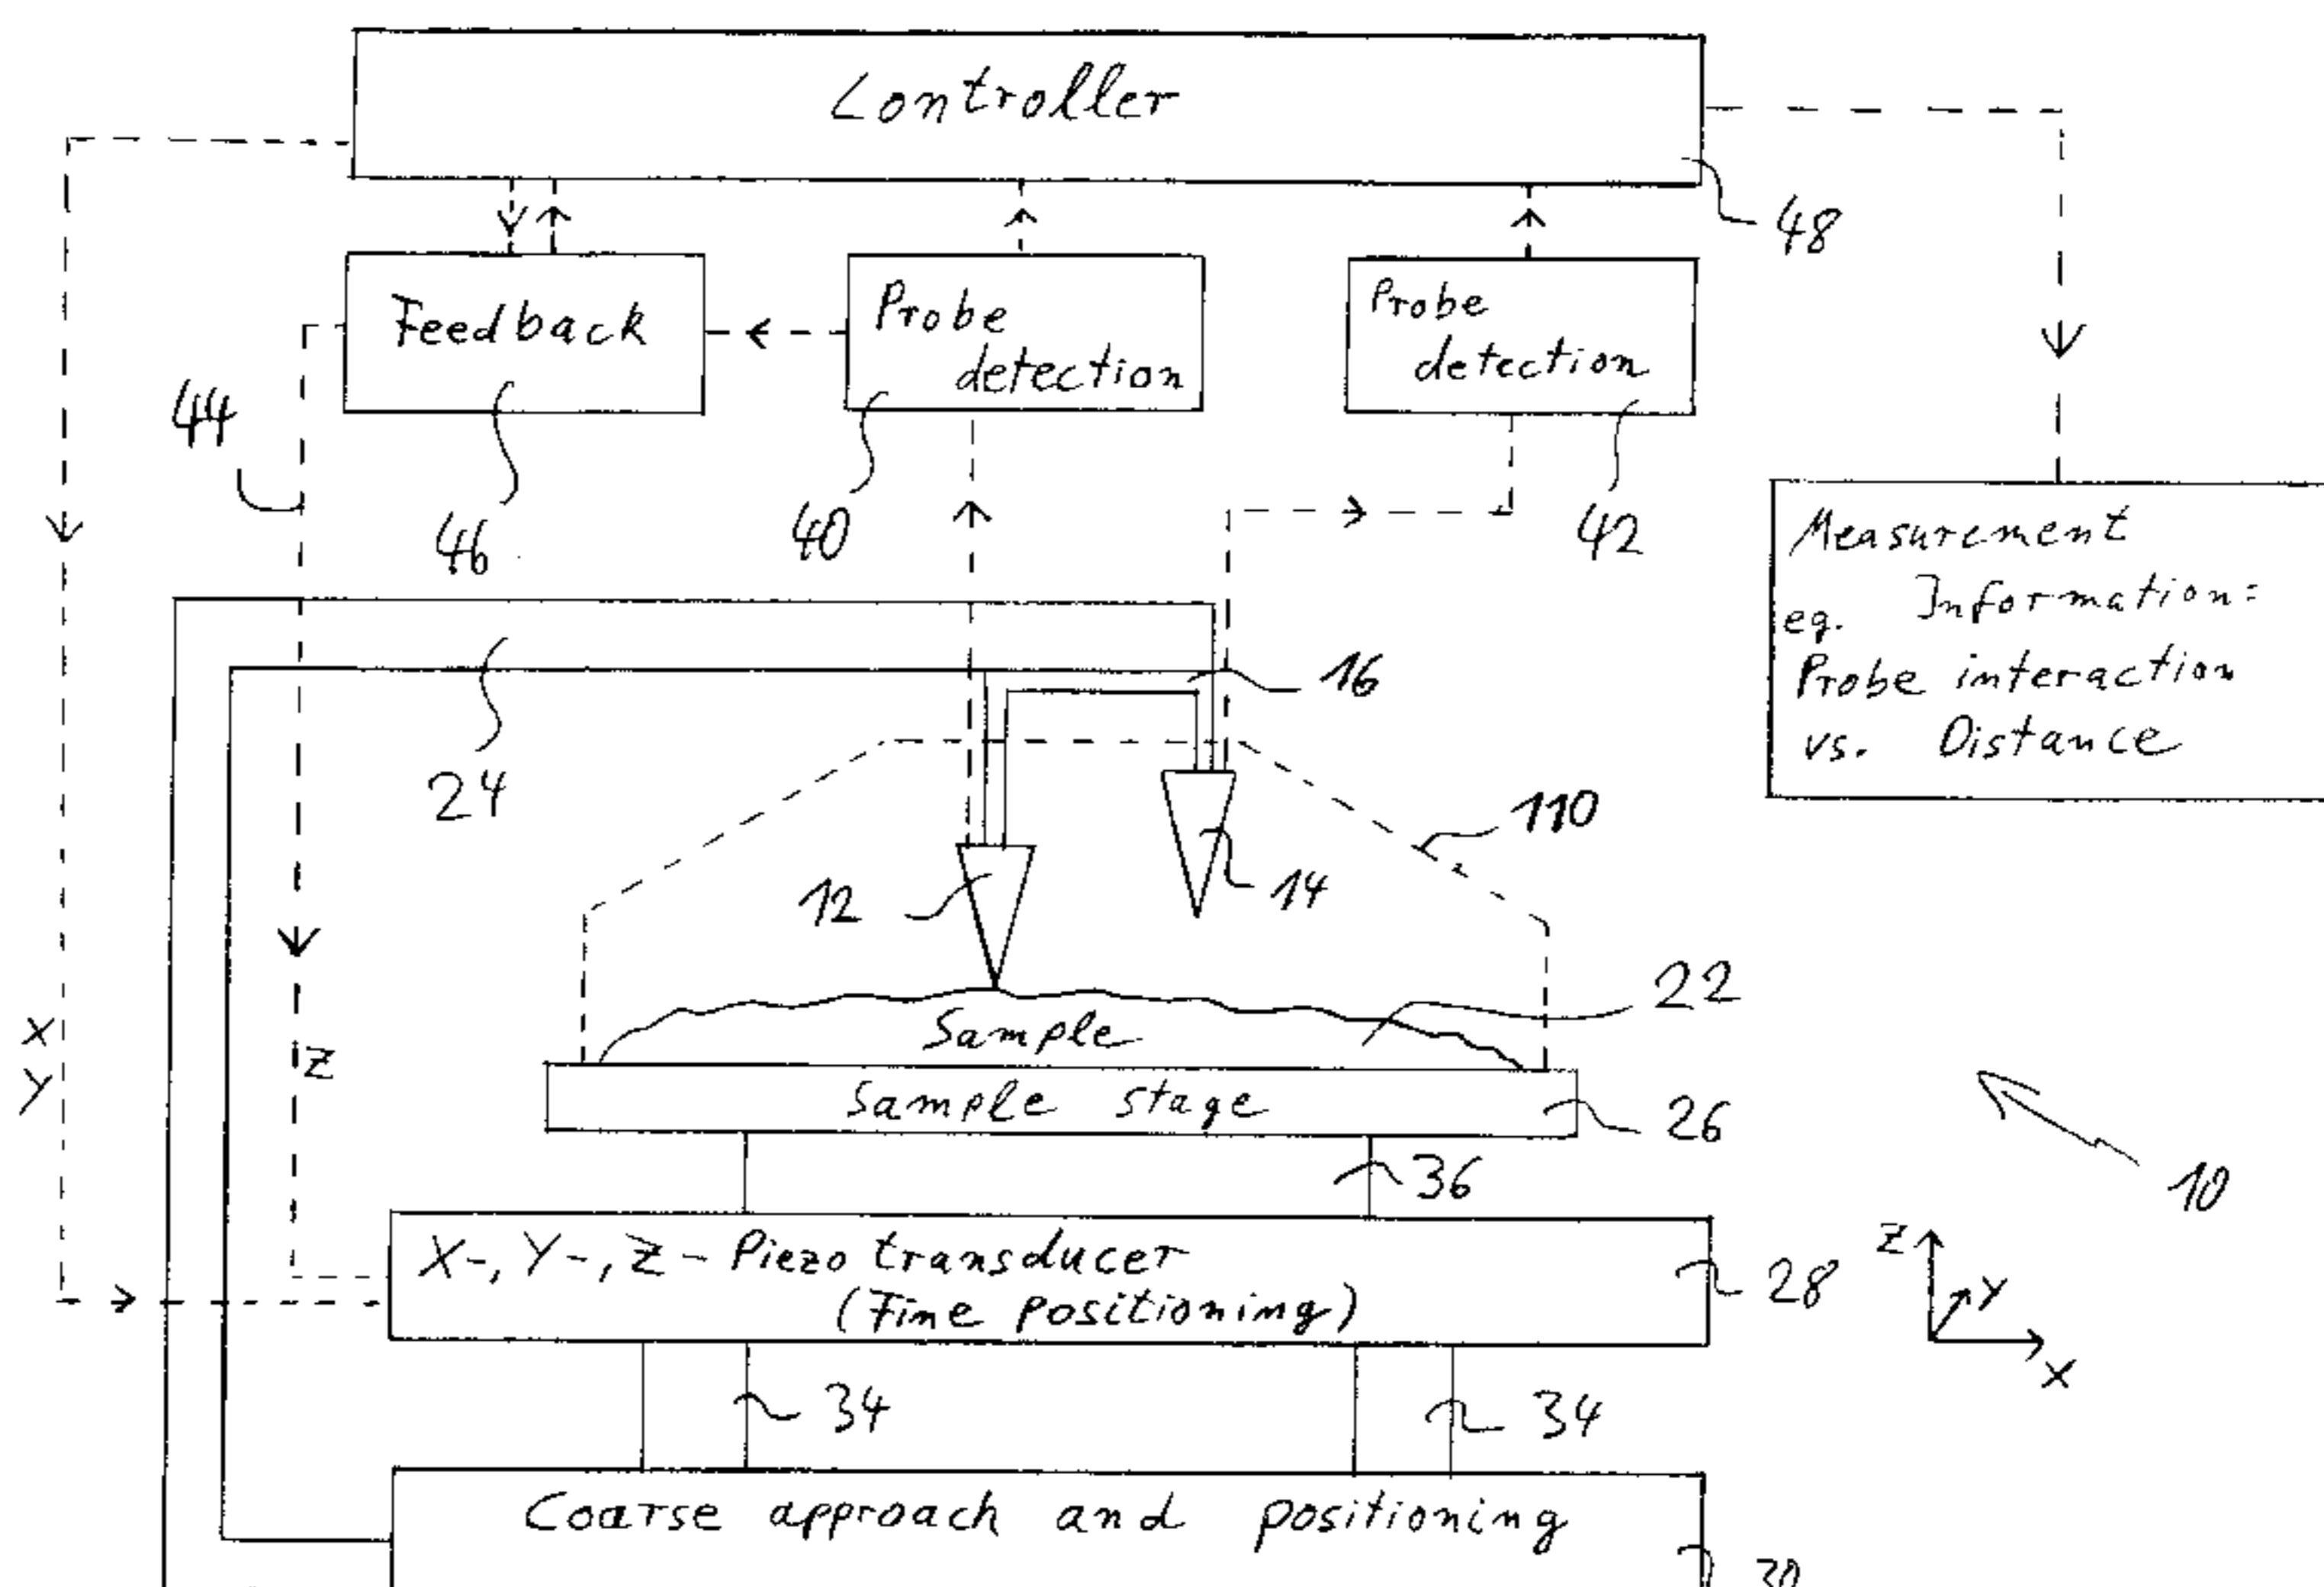 Controller
48
Feedback
Probe
detection
Probe
detection
44
46
40
42
Measurement
Information:
eg.
Probe interaction
vs. Distance
16
24
110
12
14
22
Sample
X
Y
Z
Sample stage
26
36
10
X-, Y-, Z- Piezo transducer
(Fine positioning)
28
Z
Y
X
34
34
Coarse approach and positioning